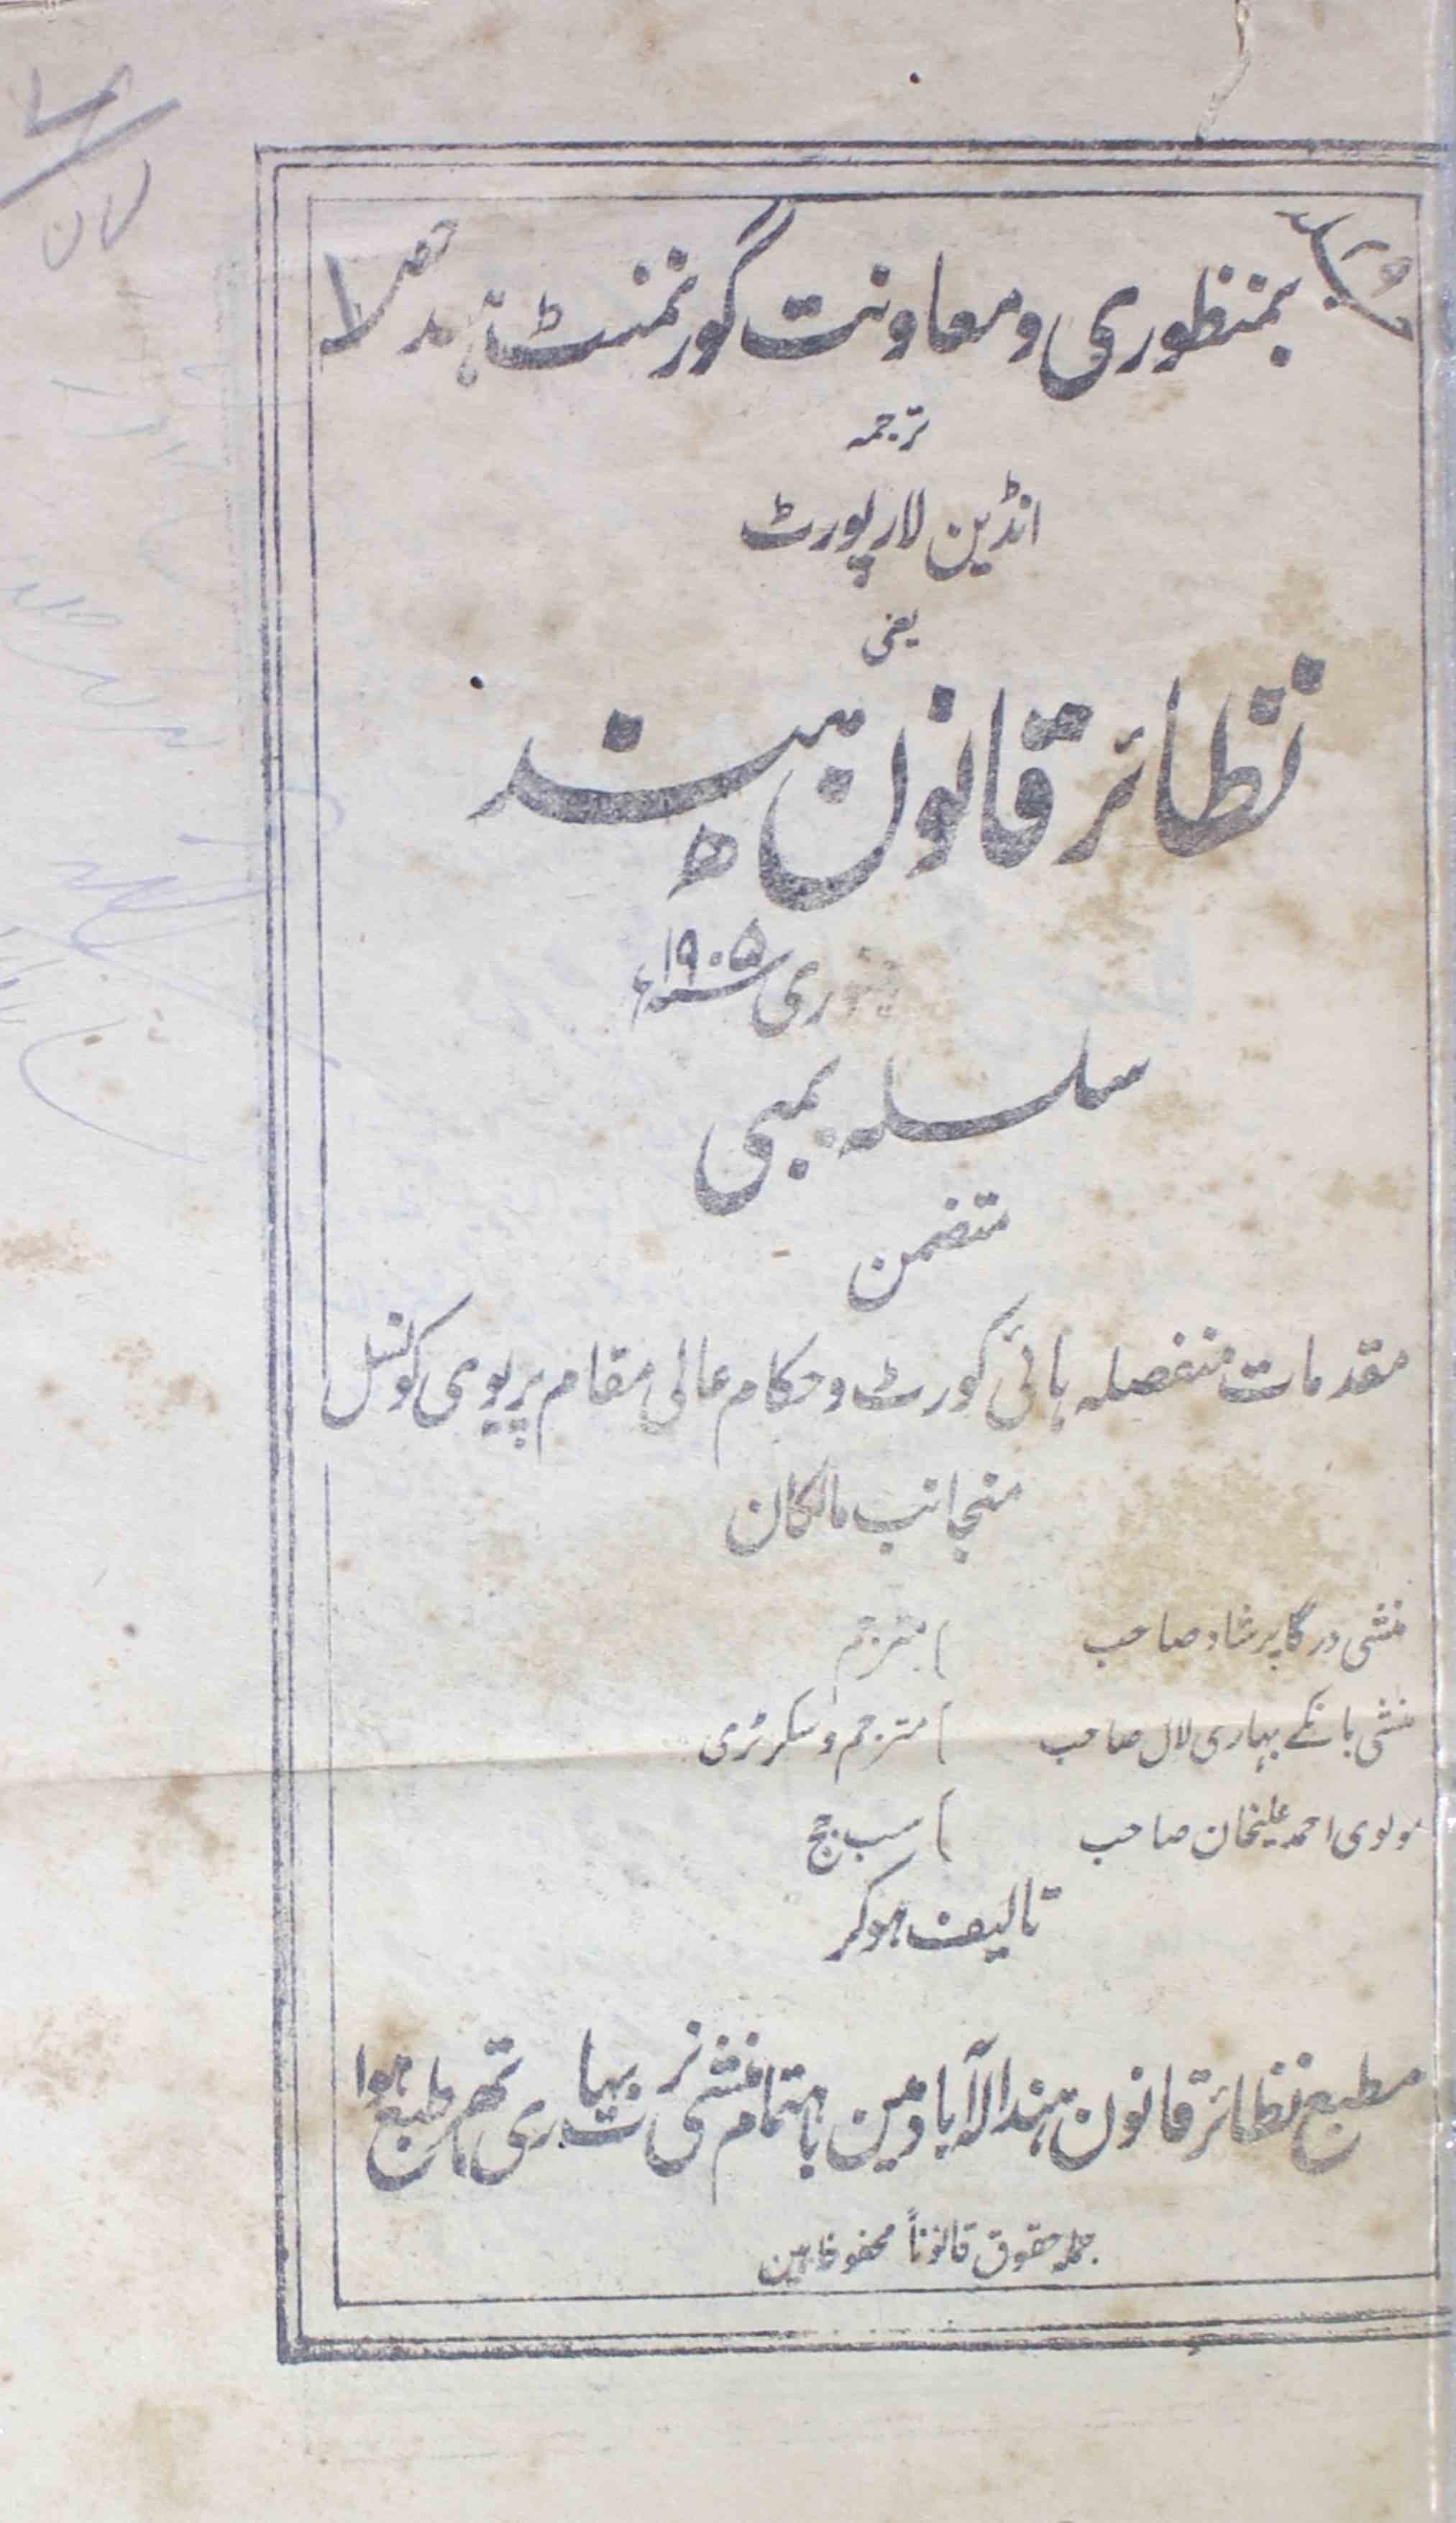 بمنظوری و معاونت گورنمنٹ ہند حصہ ۱
ترجمہ
انڈین لا رپورٹ
یعنی
نظائر قانون ہند
جنوری سنہ ۱۹۰۵ء
سلسلہ بمبئی
متضمن
مقدمات منفصلہ ہائی کورٹ و حکام عالی مقام پریوی کونسل
منجانب مالکان
منشی درگا پرشاد صاحب ) مترجم
منشی بانکے بہاری لال صاحب ) مترجم و سکرٹری
مولوی احمد علیخان صاحب ) سب جج
تالیف ہوکر
مطبع نظائر قانون ہند الہ آباد مین باہتمام منشی بہاری طبع ہوا
جملہ حقوق قانوناً محفوظ ہین